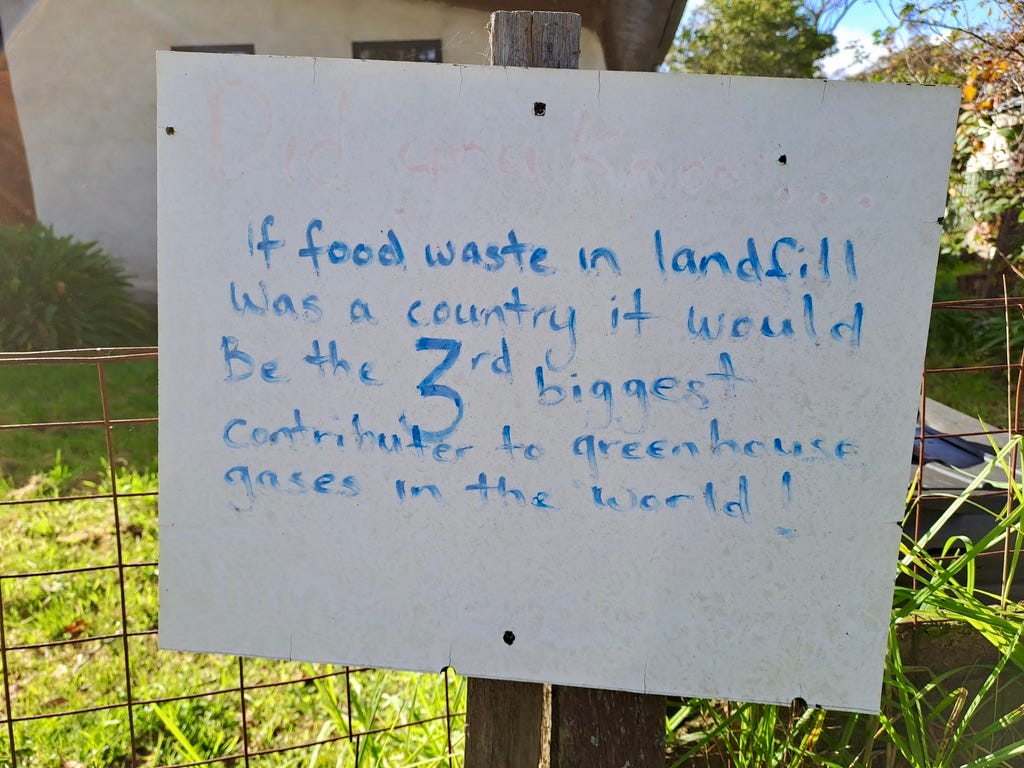 Did you know...
If food waste in landfill
Was a country it would
Be the 3rd biggest
contributer to greenhouse
gases in the world!